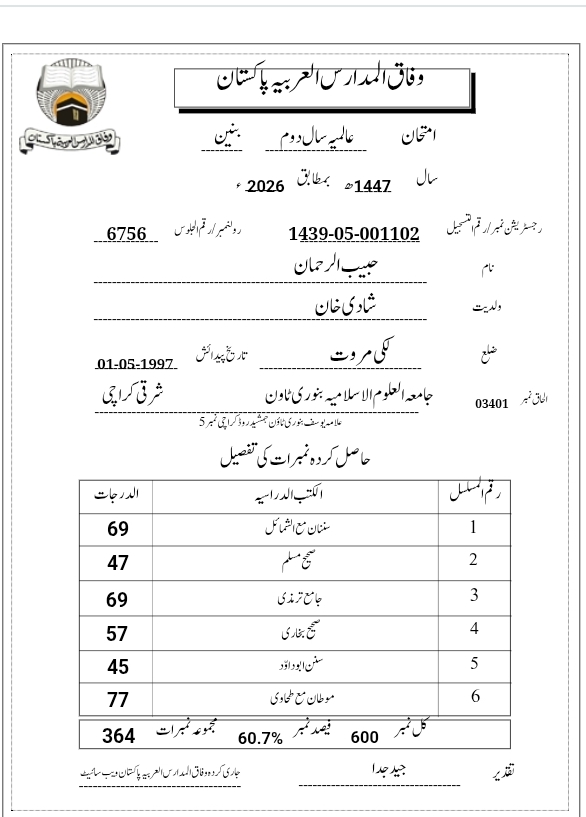 وفاق المدارس العربیہ پاکستان
وفاق المدارس العربیہ پاکستان
امتحان عالمیہ سال دوم بنین
سال 1447ھ بمطابق 2026 ء
رجسٹریشن نمبر/رقم التسجیل 1439-05-001102 رولنمبر/رقم الجلوس 6756
نام حبیب الرحمان
ولدیت شادی خان
ضلع لکی مروت تاریخ پیدائش 01-05-1997
الحاق نمبر 03401 جامعہ العلوم الاسلامیہ بنوری ٹاون شرقی کراچی
علامہ یوسف بنوری ٹاؤن جمشید روڈ کراچی نمبر 5
حاصل کردہ نمبرات کی تفصیل
رقم المسلسل الکتب الدراسیہ الدرجات
1 سننان مع الشمائل 69
2 صحیح مسلم 47
3 جامع ترمذی 69
4 صحیح بخاری 57
5 سنن ابوداؤد 45
6 موطان مع طحاوی 77
کل نمبر 600 فیصد نمبر 60.7% مجموعہ نمبرات 364
تقدیر جید جدا جاری کردہ وفاق المدارس العربیہ پاکستان ویب سائیٹ